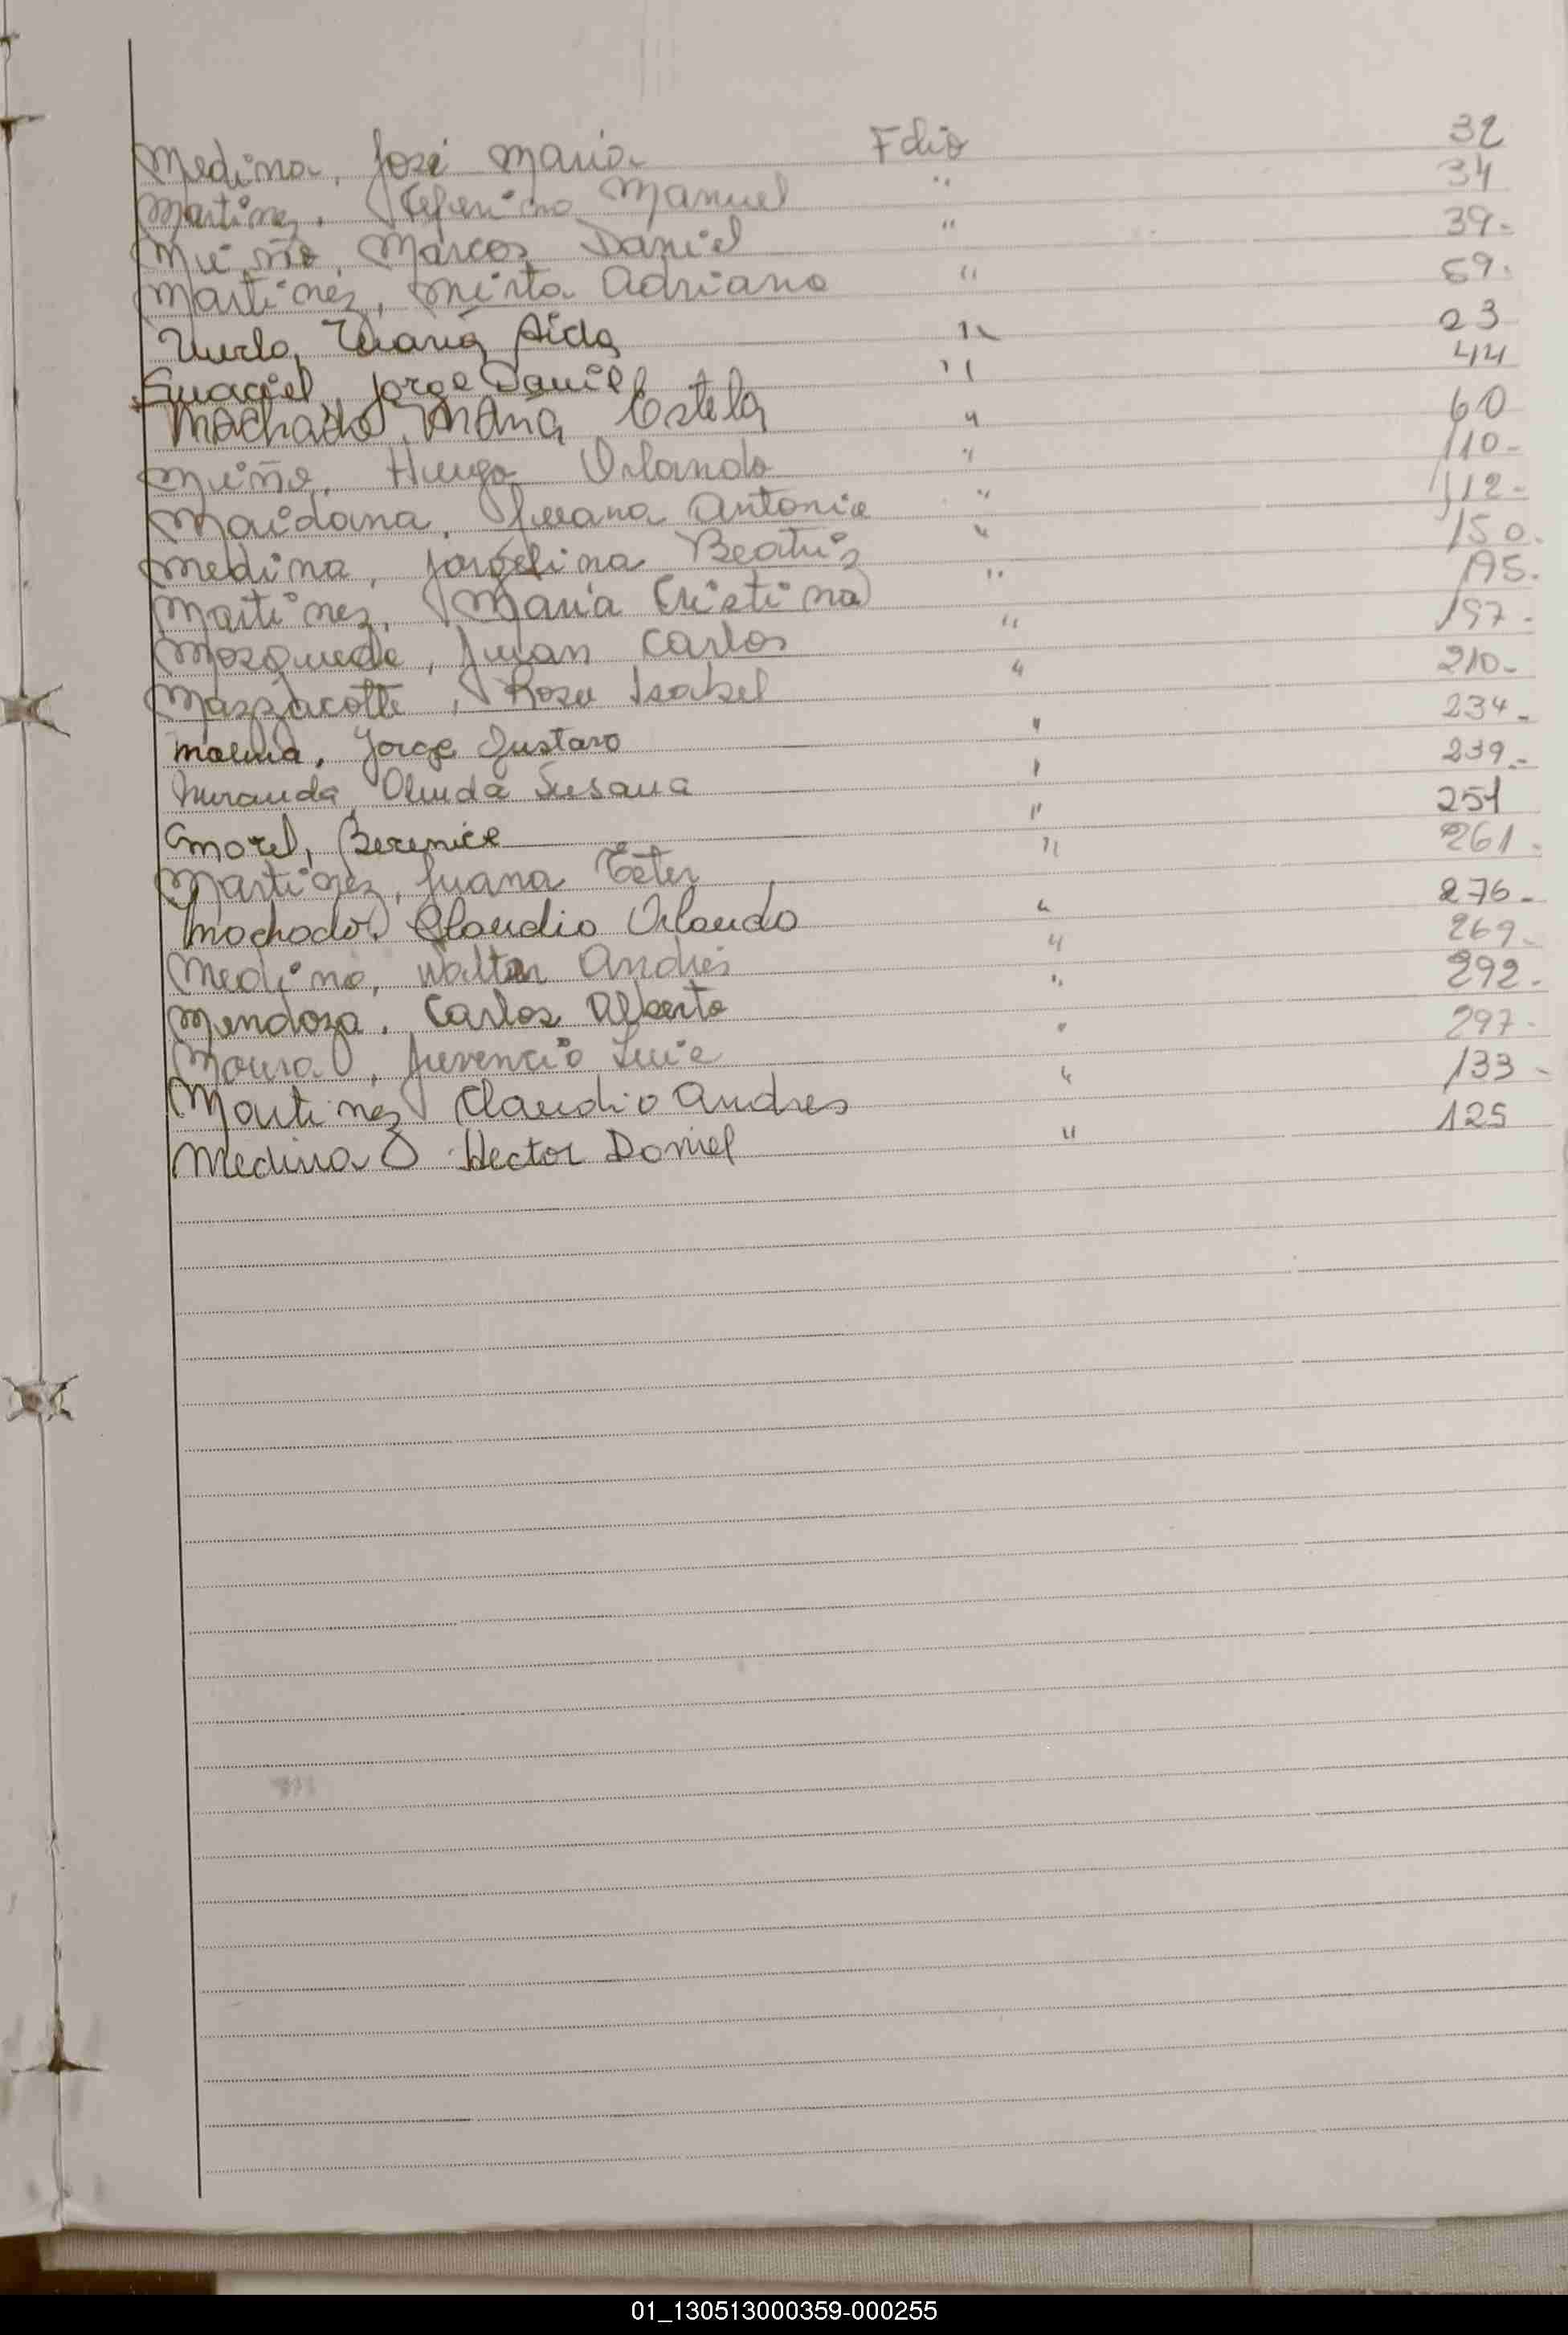 Medina, José Maria Folio 32
Martinez, Ceferino Manuel " 34
Muiño, Marcos Daniel " 39.-
Martinez, Mirta Adriana " 59.
Merlo, Maria Aida " 23
Maciel, Jorge Daniel " 44
Machado, Maria Estela " 60
Muiño, Hugo Orlando " 110-
Maidana, Juana Antonia " 112-
Medina, Jorgelina Beatriz " 150.
Martinez, Maria Cristina " 195.
Mosqueda, Juan Carlos " 197-
Mazzacotte, Rosa Isabel " 210-
Molina, Jorge Gustavo " 234-
Miranda, Olinda Susana " 239.-
Morel, Berenice " 251
Martinez, Juana Ester " 261.
Machado, Claudio Orlando " 276-
Medina, Walter Andrés " 269-
Mendoza, Carlos Alberto " 292.
Moura, Juvencio Luis " 297-
Martinez Claudio Andres " 133-
Medina Hector Daniel " 125
01_130513000359-000255